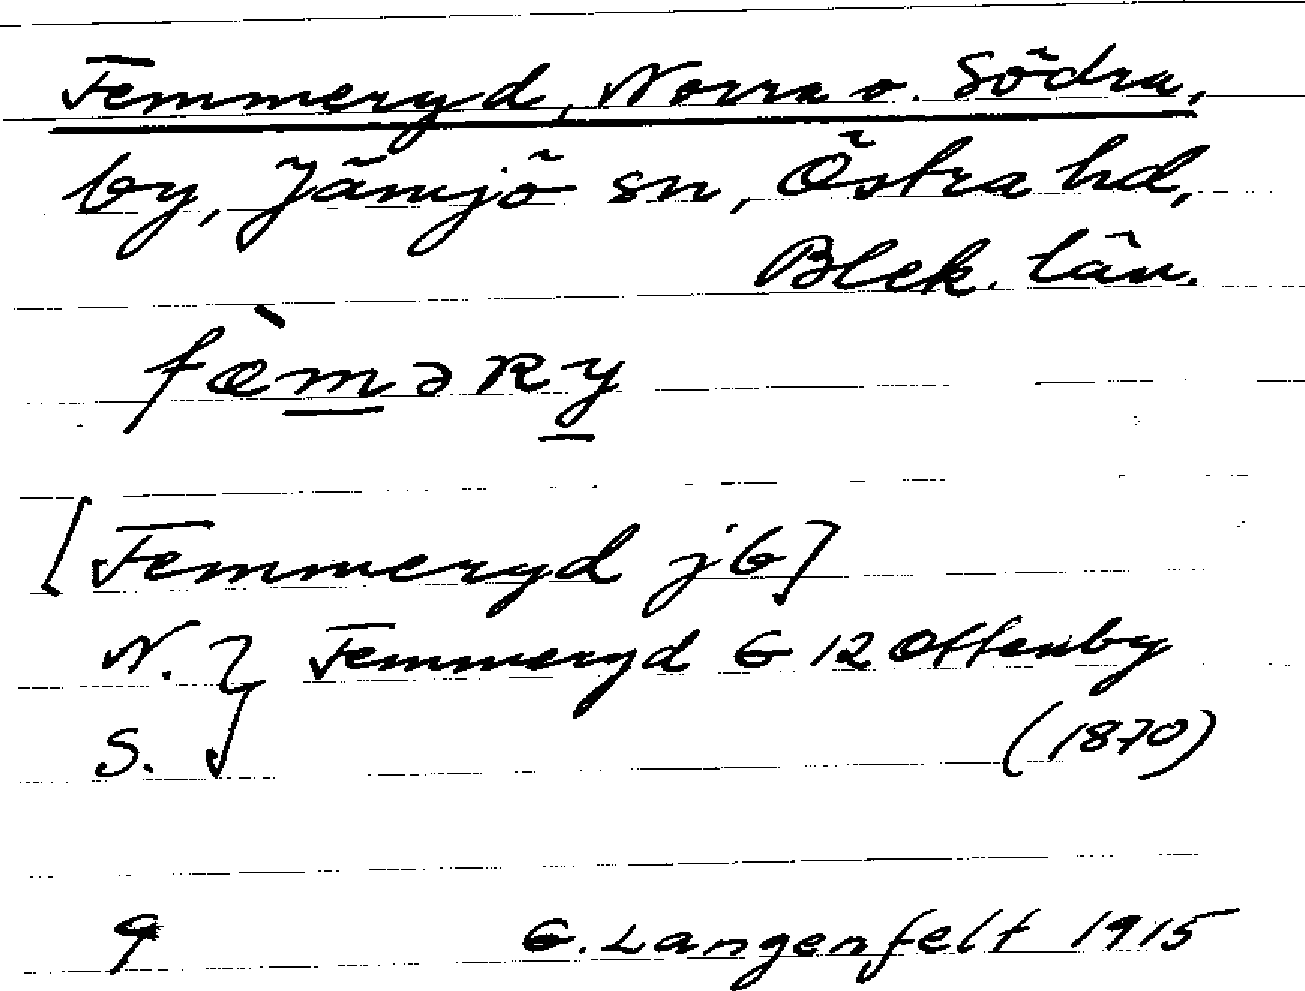 Femmeryd, Norra o. Södra,
by, Jämjö sn, Östra hd,
Blek. län.
fæ̀məRy
[Femmeryd jb]
N. } Femmeryd G 12 Ottenby
S. (1870)
9 G. Langenfelt 1915